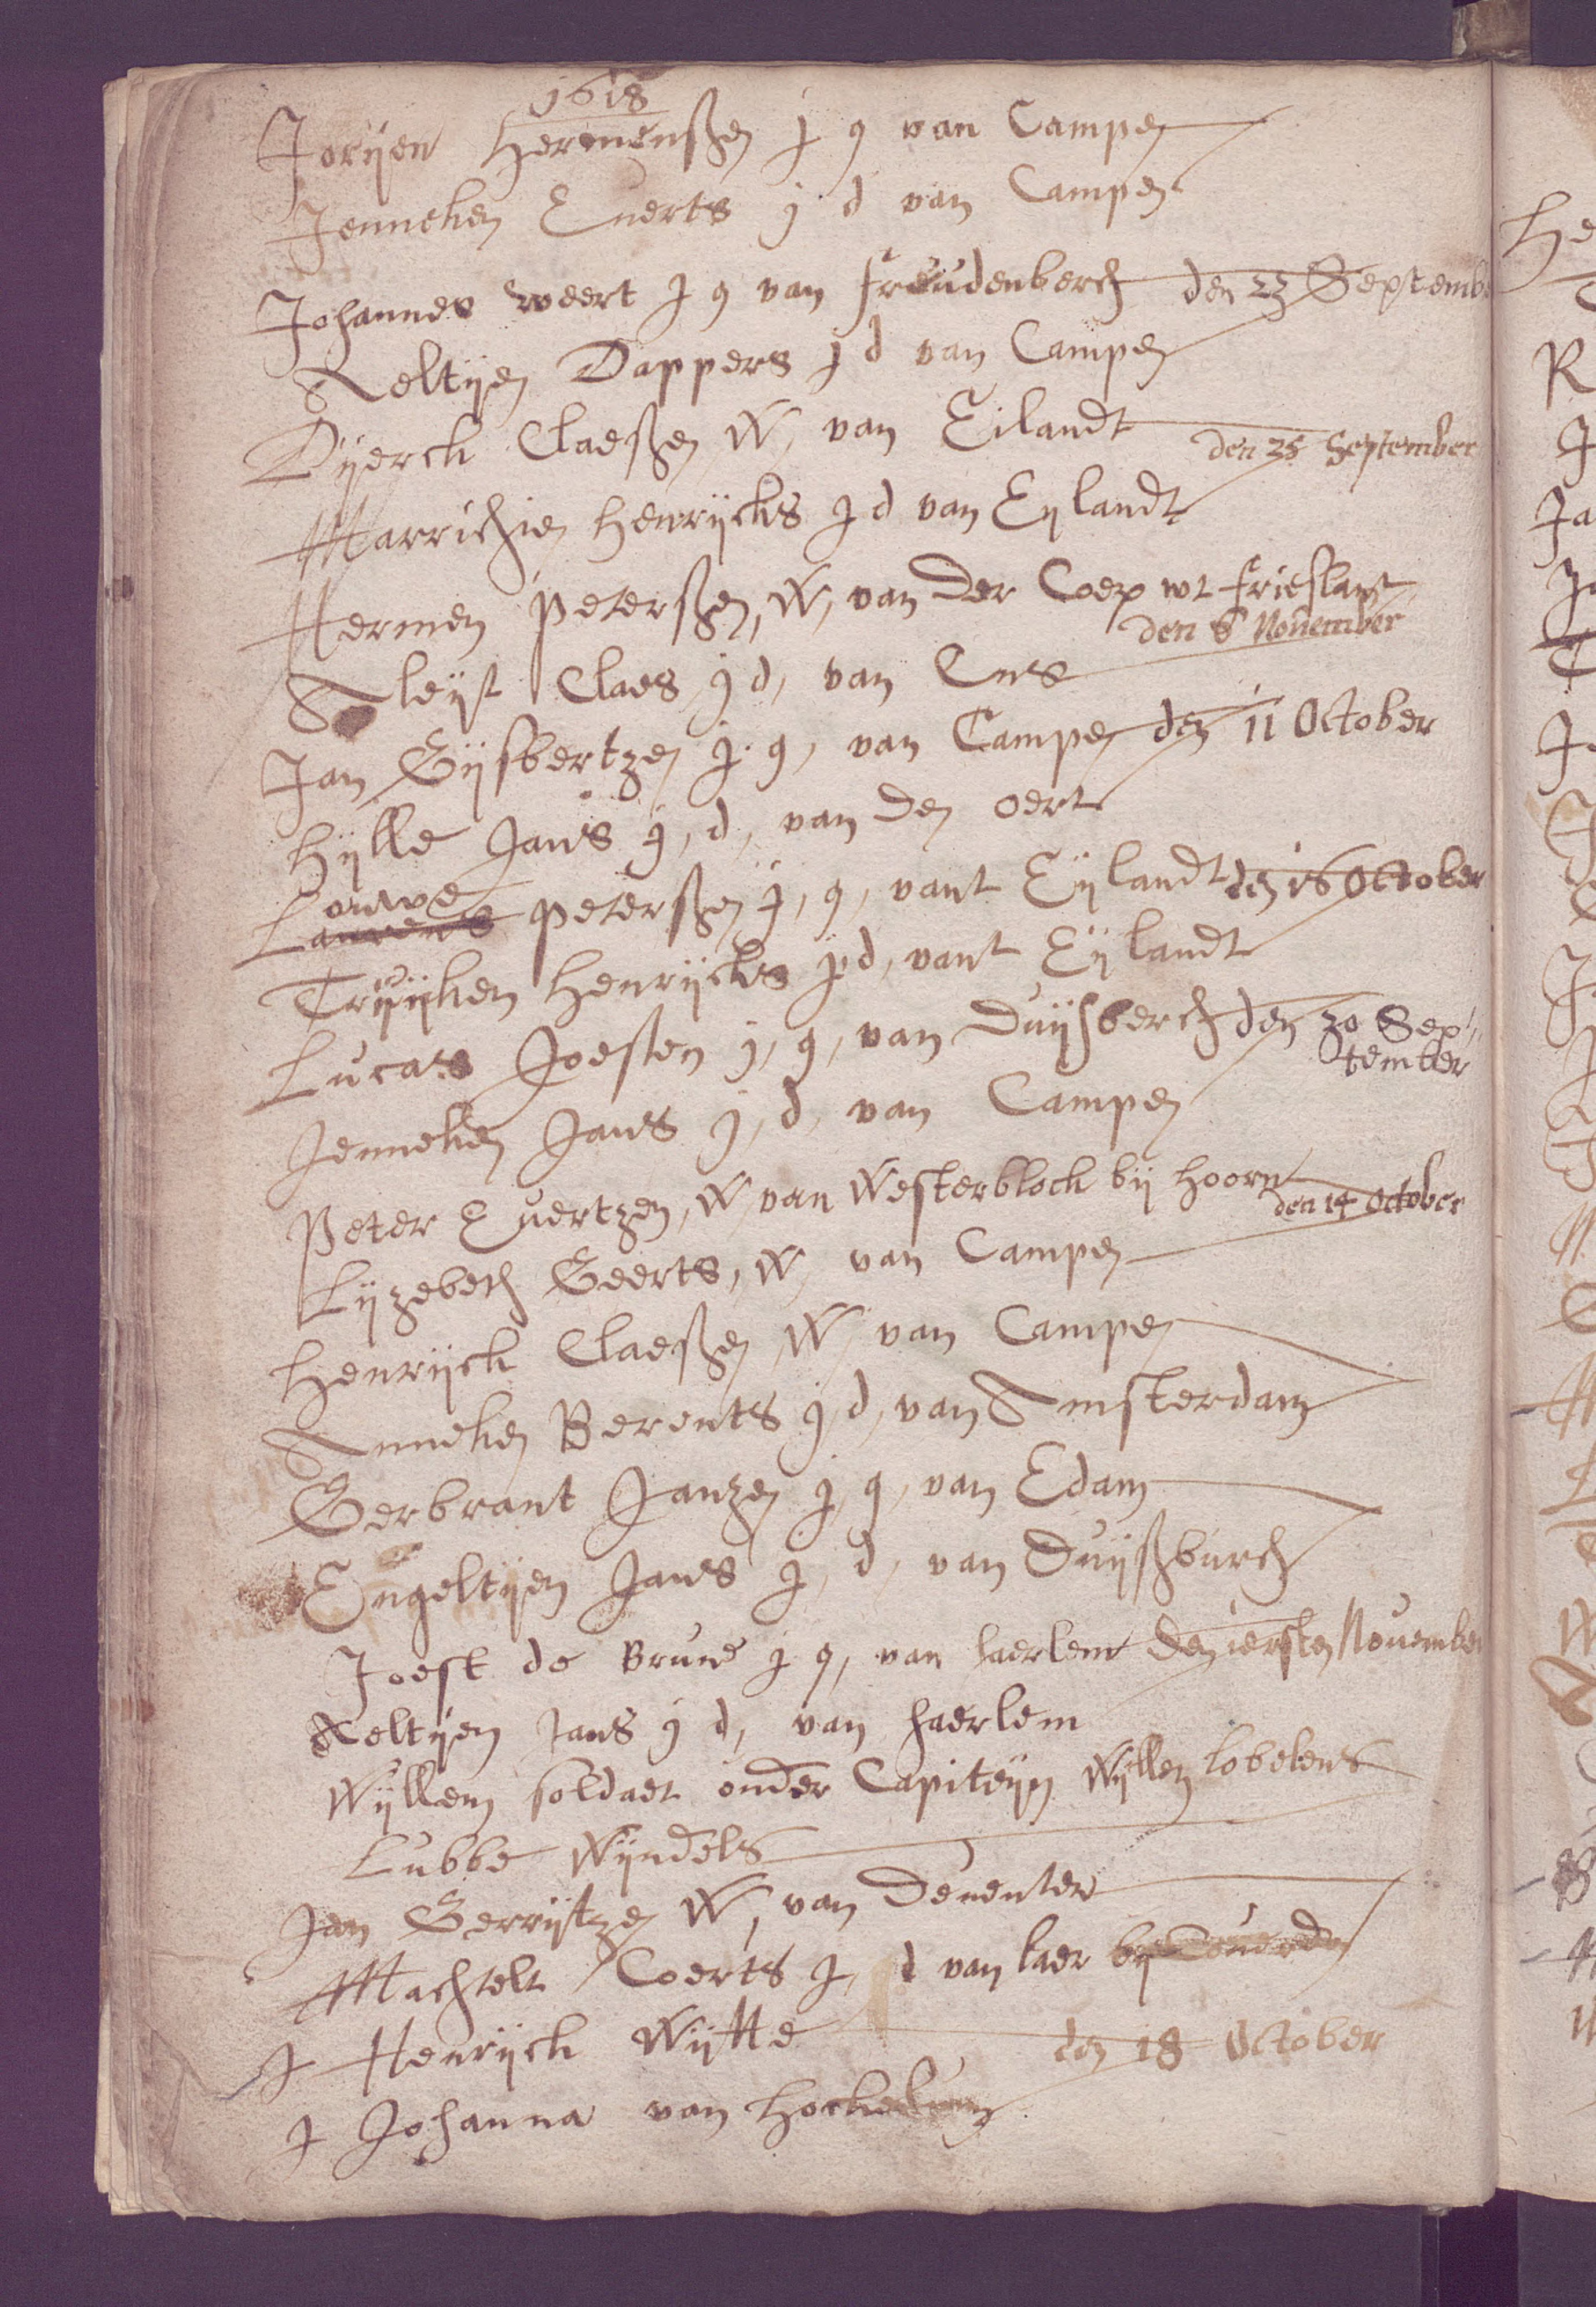 1618
Jorijen Hermenssen j g van Campen
Jenneken Euerts j d van Campen
Johannes weert j g van freudenberch den 23 Septemb
Aeltijen Dappers j d van Campen
Dijerck Claessen, W, van Eilandt
den 25 September
Marrichien Henrijcks j d van Eylandt
Hermen Peterssen, W, van der Coep wt frieslant
den 8 November
Aleijt Claes, j d, van Ens
Jan Gijsbertzen j. g, van Campen den 11 October
Hijlle Jans j, d, van den oert
ouwe
Laurens Peterssen j, g, vant Eijlandt den 16 October
Trijken Henrijcks j, d, vant Eijlandt
Lucas Joesten j, g, van Duijsberch den 20 Sep
tember
Jenneken Jans j, d, van Campen
Peter Euertzen, W, van Westerblock bij hoorn
den 14 October
Lijzebeth Geerts, W, van Campen
Henrijck Claessen, W, van Campen
Anneken Berents j, d, van Amsterdam
Gerbrant Janzen j, g, van Edam
Engeltijen Jans j, d, van Duijsburch
Joest de Brune j g, van haerlem den iersten Nouember
Aeltijen Jans j d, van haerlem
Wijllem soldaet onder Capiteijn Wijllem lobelens
Lubbe Wijndels
Jan Gerrijtzen W, van Deuenter
Machtelt Coerts j, d van laer bij
J Henrijck Wijtte den 18 October
J Johanna van